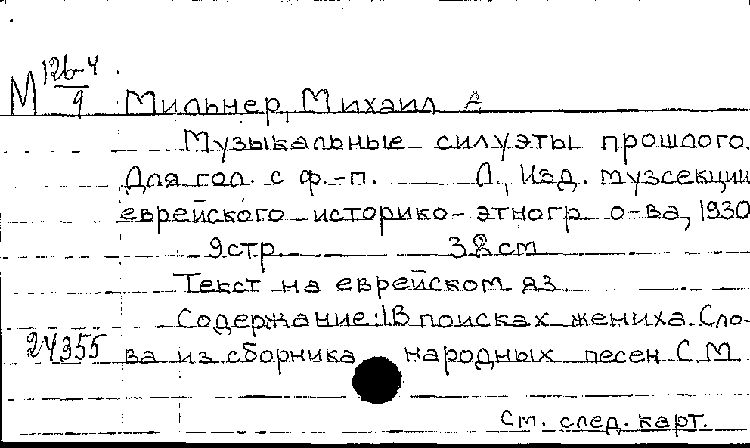 М 12б-4
9
Мильнер, Михаил А
Музыкальные силуэты прошлого.
Для гол. с ф.-п. Л., Изд. музсекции
еврейского историко-этногр о-ва, 1930
9стр. 38см
Текст на еврейском яз.
Содержание: 1В поисках жениха. Сло-
24355 ва из сборника народных песен С.М.
См. след. карт.